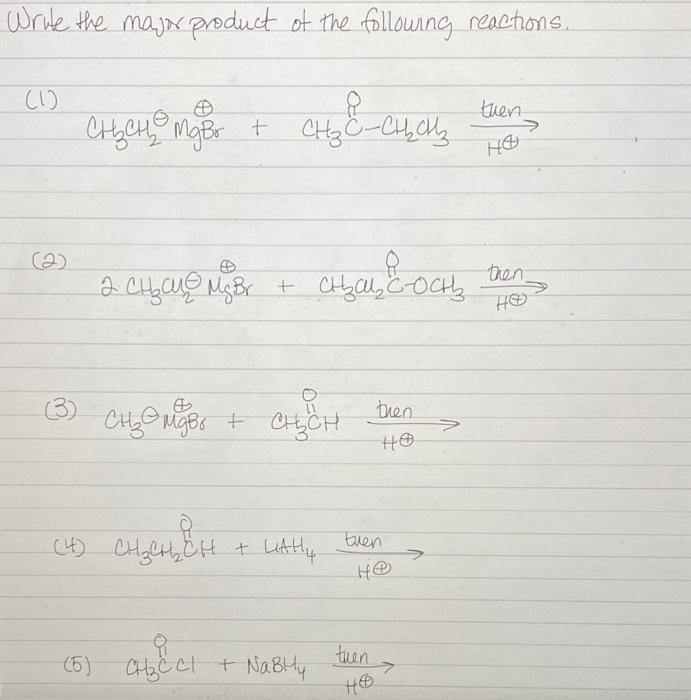 Write the major product of the following reactions.
(1) CH₃CH₂⊖ MgBr⊕ + CH₃C(=O)-CH₂CH₃ then H⊕ →
(2) 2 CH₃CH₂⊖ MgBr⊕ + CH₃CH₂C(=O)-OCH₃ then H⊕ →
(3) CH₃⊖ MgBr⊕ + CH₃C(=O)H then H⊕ →
(4) CH₃CH₂C(=O)H + LiAH₄ then H⊕ →
(5) CH₃C(=O)Cl + NaBH₄ then H⊕ →